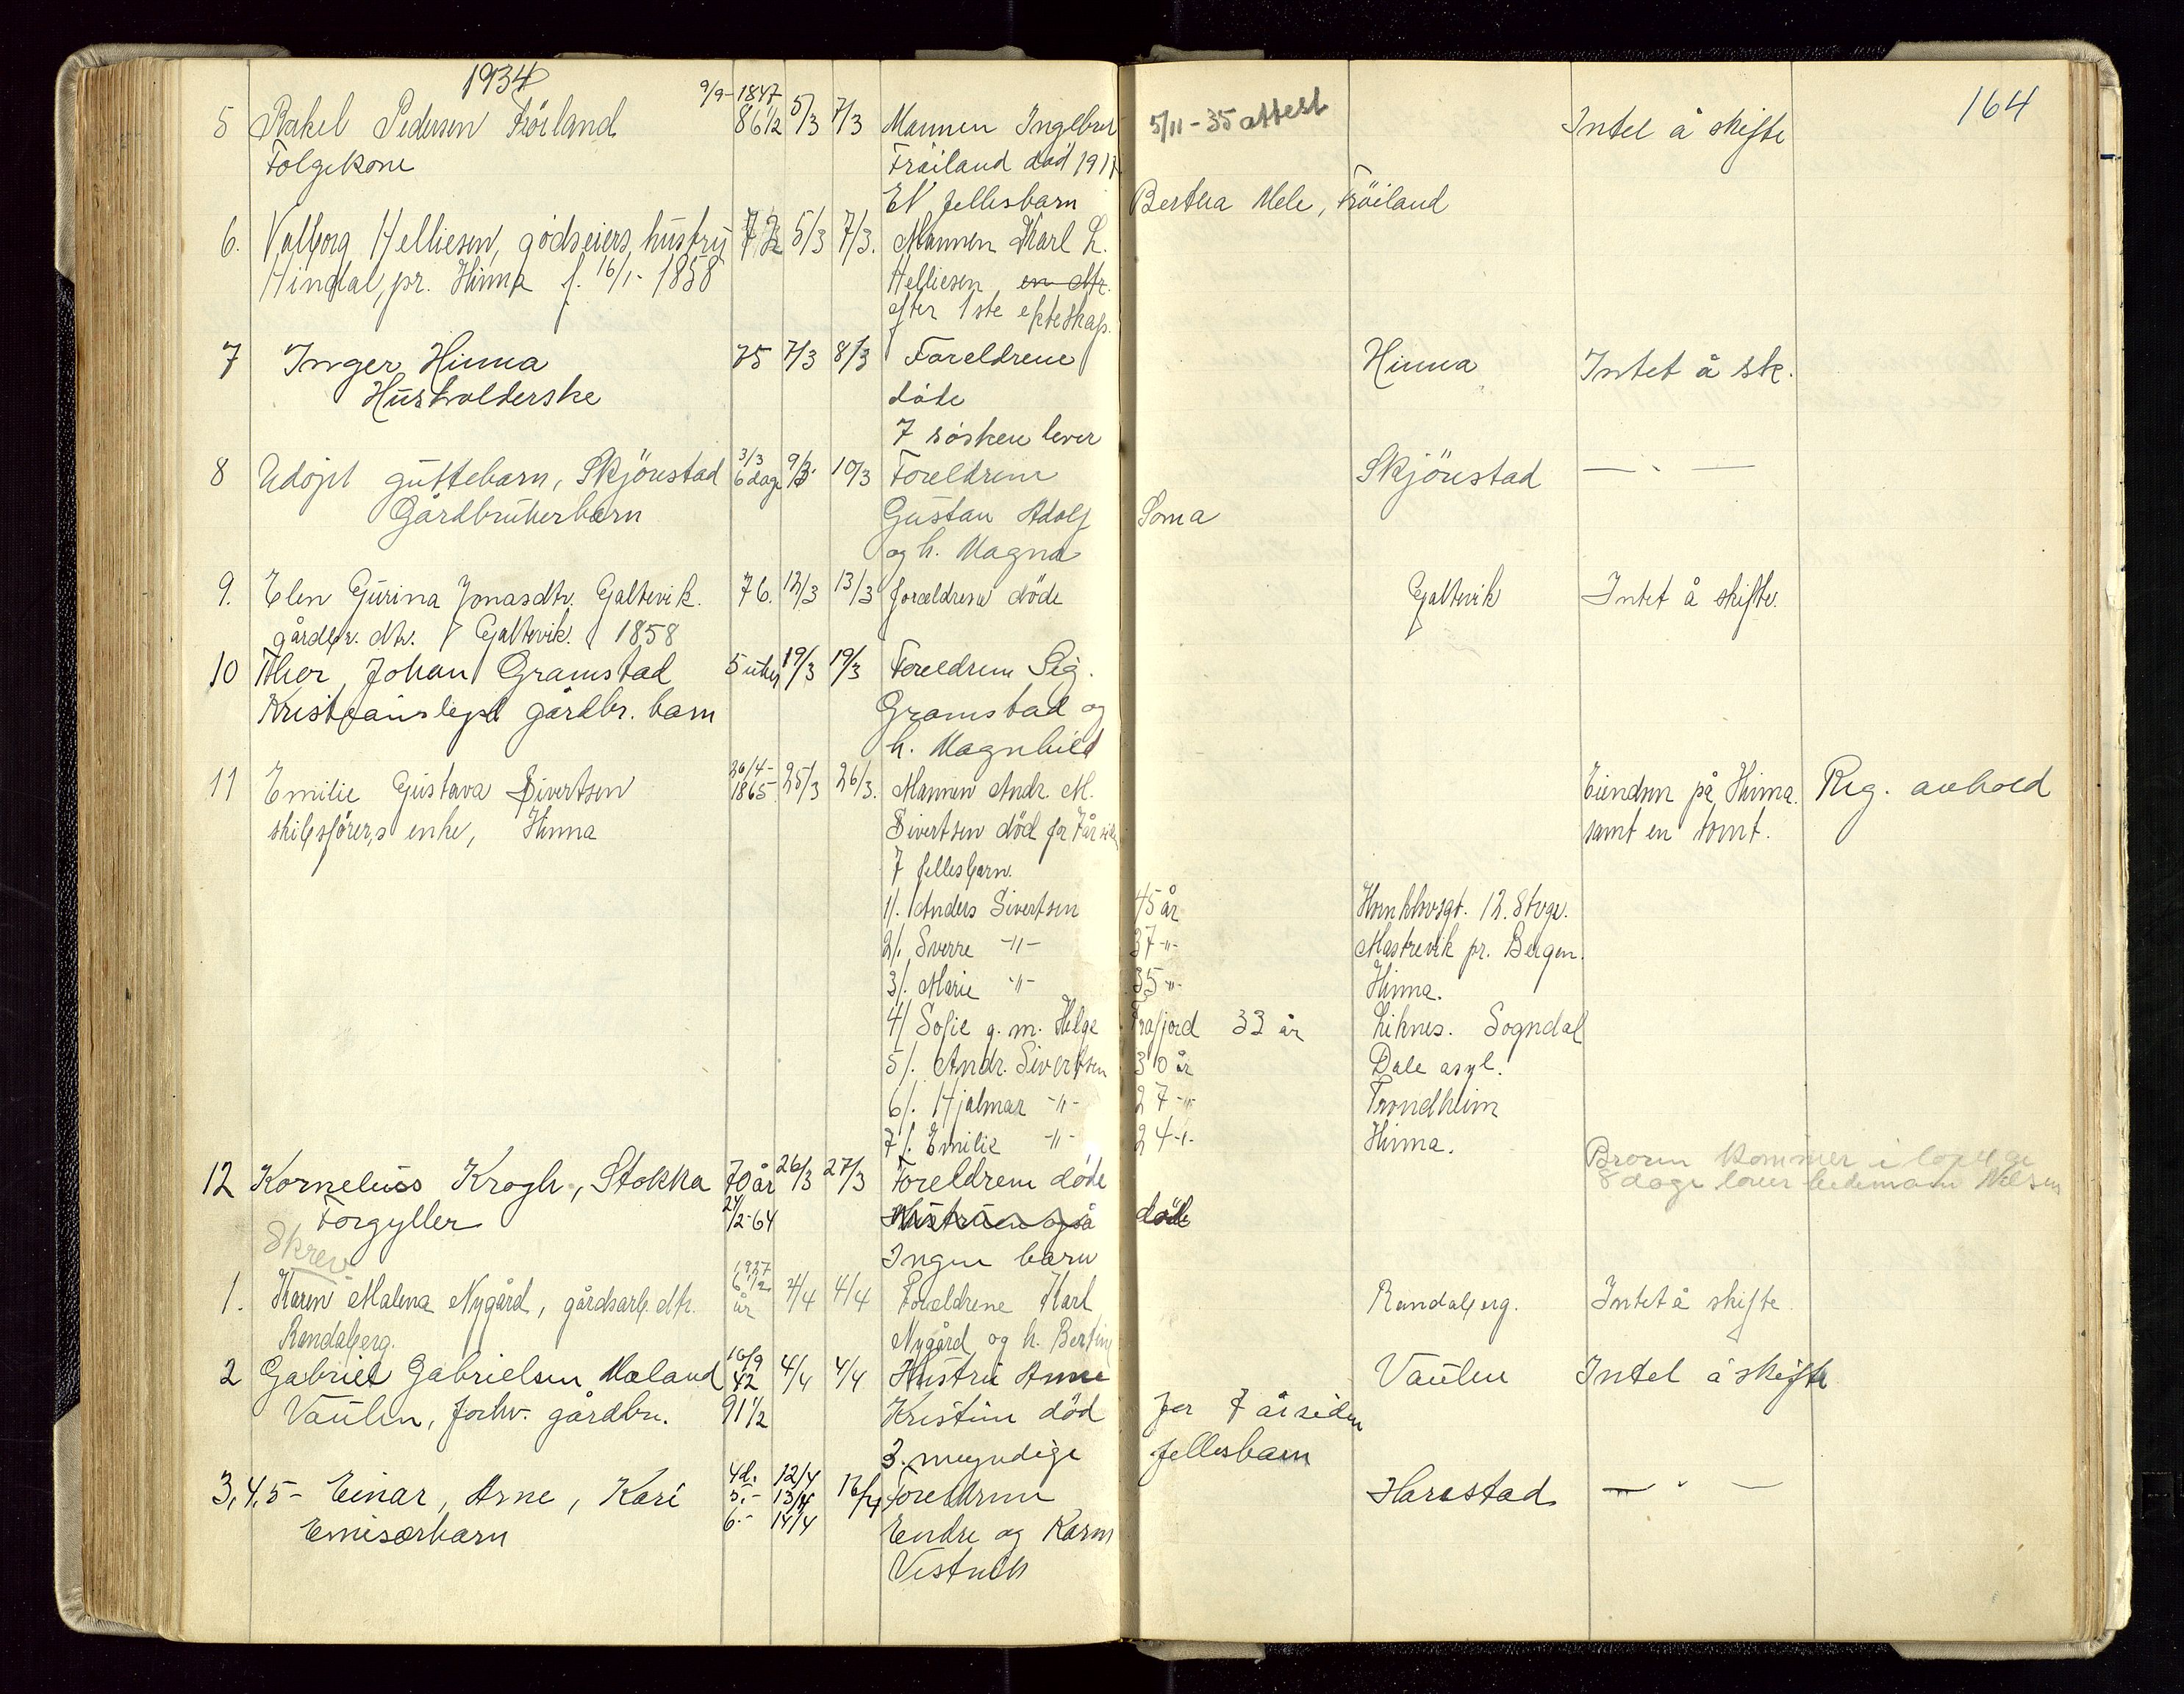 1934
164
5 Rakel Pedersen Fröiland 9/9-1847 86 1/2 5/3 7/3 Mannen Ingebret 5/11-35 attest Intet å skifte
Folgekone Fröiland död 1917
Et fellesbarn Bertha Mele, Fröiland
6. Valborg Helliesen, godseiers hustru 5/3 7/3. Mannen Karl L.
Hindal, pr. Hinna f. 16/1-1858 Helliesen en dtr.
efter 1ste ekteskap.
7 Inger Hinna 75 7/3 8/3 Foreldrene Hinna Intet å sk.
Husholderske döde
7 sösken lever
8 Udöpt guttebarn, Skjönstad 3/3 6 dage 9/3 10/3 Foreldrene Skjönstad — " —
Gårdbrukerbarn Gustav Adolf Soma
og h. Magna
9. Elen Gurina Jonasdtr. Galtevik. 76. 12/3 13/3 foreldrene döde Galtevik Intet å skifte.
gårdbr. dtr. Galtevik. 1858
10 Thor Johan Gramstad 5 uker 19/3 19/3 Foreldrene Sig.
gårdbr. barn Gramstad og
h. Magnhild
11 Emilie Gustava Sivertsen 26/4-1865 25/3 26/3. Mannen Andr. M. Eiendom på Hinna. Reg. avhold
skibsförers enke, Hinna Sivertsen död for 7 år siden samt en tomt.
7 fellesbarn.
1/. Anders Sivertsen 45 år 12. Stvgr.
2/. Sverre -"- 37-"- Mastrevik pr. Bergen.
3/. Marie -"- 35-"- Hinna.
4/ Sofie g. m. Helge Frafjord 33 år Liknes. Sogndal
5/. Andr. Sivertsen 30 år Dale asyl.
6/. Hjalmar -"- 27-"- Trondheim
7/. Emilie -"- 24-"- Hinna.
12 Kornelius Krogh, Stokka 70 år 26/3 27/3 Foreldrene döde Broren kommer i löpet av
Forgyller 24/2-64 Hustruen også död 8 dage
Skrev Ingen barn
1. Karen Malena Nygård, gårdsarb. dtr. 1927 6 1/2 år 2/4 4/4 Foreldrene Karl Randaberg. Intet å skifte.
Randaberg. Nygård og h. Bertine
2 Gabriel Gabrielsen Mæland 16/9 42 4/4 4/4 Hustru Anne Vaulen Intet å skifte
Vaulen, forhv. gårdbr. 91 1/2 Kristine död for 7 år siden
3 myndige fellesbarn
3,4,5- Einar, Arne, Kari 4d. 12/4 16/4 Foreldrene Harestad — " —
5.- 13/4
Emisærbarn 6.- 14/4 Endre og Karen
Vestvik